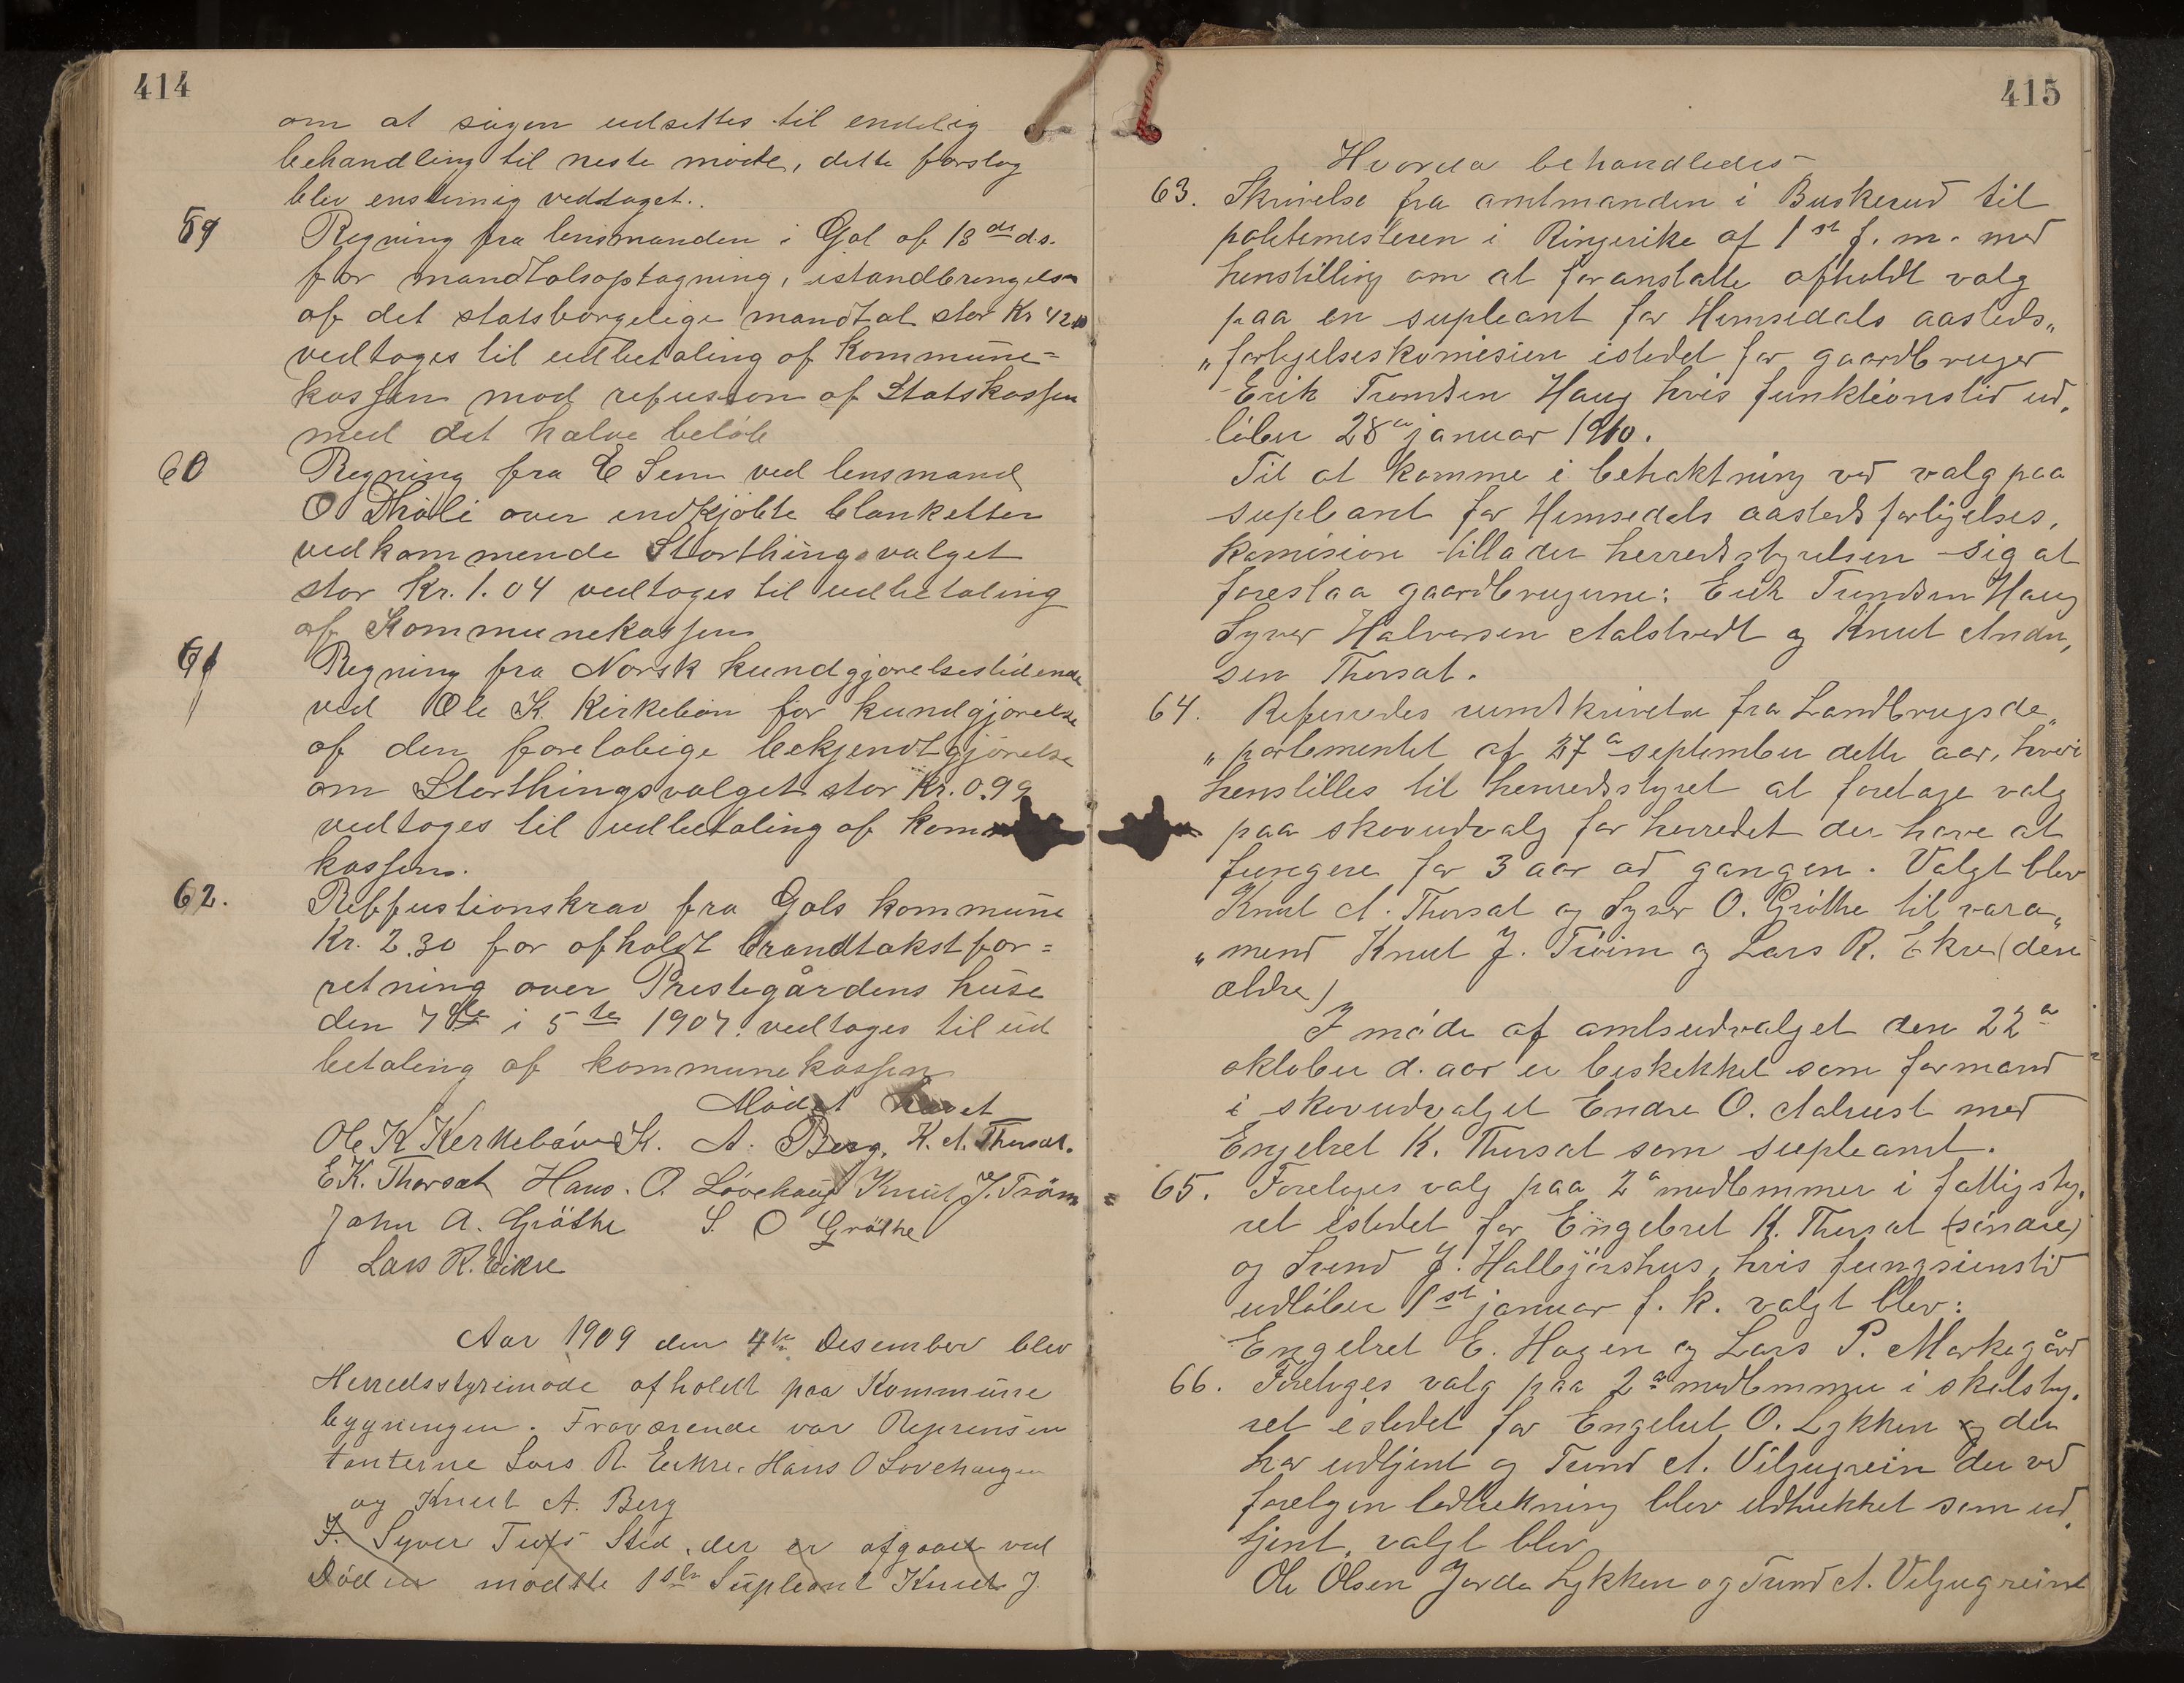 414
om at sagen udsettes til endelig
behandling til neste møde, dette forslag
blev enstemig vedtaget.
59 Regning fra lensmanden i Gol af 18de ds.
for mandtalsoptagning, istandbringelse
af det statsborgelige mandtal stor Kr 42
vedtoges til udbetaling af Kommune=
kassen mod refusion af Statskassen
med det halve beløb
60 Regning fra E Senn ved lensmand
O Tholi over indkjøbte blanketter
vedkommende Storthingsvalget
stor Kr. 1.04 vedtoges til udbetaling
af Kommunekassen
61 Regning fra Norsk kundgjørelsestidende
ved Ole K. Kirkebøn for kundgjørelse
af den foreløbige bekjendtgjørelse
om Storthingsvalget stor Kr. 0.99
vedtoges til udbetaling af kom
kassen.
62. Reffustionskrav fra Gols kommune
Kr. 2.30 for afholdt brandtakstfor=
retning over Prestegårdens huse
den 7de i 5te 1907. vedtoges til ud
betaling af kommunekassen
Mødet hævet
Ole K Kerkebøn K. A. Berg. K. A. Thorsat.
E K. Thorsat Hans. O. Løvehaug Knut J. Trøim
John A. Grøthe S. O Grøthe
Lars R. Eikre
Aar 1909 den 4de Desember blev
Herredsstyremøde afholdt paa Kommune
bygningen. Fraværende var Reprensen
tanterne Lars R Eekre, Hans O Lovehaugen
og Knut A. Berg
I. Syver Tufs Sted, der er afgaaet ved
Døden mødtte 1ste Supleant Knut J.
415
Hvorda behandledes
63. Skrivelse fra amtmanden i Buskerud til
politimesteren i Ringerike af 1st f. m. med
henstilling om at foranstalte afholdt valg
paa en supleant for Hemsedals aasteds„
„forligelseskomisien istedet for gaardbruger
Erik Trondsen Haug hvis funktionstid ud„
løber 28a januar 1910.
Til at komme i betraktning ved valg paa
supleant for Hemsedals aastedsforligelses„
komision tillader herredsstyrelsen sig at
foreslaa gaardbrugerne: Erik Trondsen Haug
Syver Halvorsen Aalstvedt og Knut Ander„
sen Thorsat.
64. Refereredes rundskrivelse fra Landbrugsde„
„partementet af 27a september dette aar, hvori
henstilles til herredsstyret at foretage valg
paa skovudvalg for herredet der have at
fungere for 3 aar ad gangen. Valgt blev
Knut A. Thorsat og Syver O. Grøthe til vara„
„mend Knut J. Trøim og Lars R. Ekre (den
ældre)
I møde af amtsudvalget den 22a
oktober d. aar er beskikket som formand
i skovudvalget Endre O. Aalrust med
Engebret K. Thorsat som supleant.
65. Foretoges valg paa 2a medlemmer i fattigsty„
ret istedet for Engebret K. Thorsat (søndre)
og Svend J. Hallbjørshus, hvis fungsionstid
udløber 1st januar f. k. valgt blev:
Engebret E. Hagen og Lars P. Markegård
66. Foretoges valg paa 2a medlemmer i skolesty„
ret istedet for Engebret O. Lykken og den
har udtjent og Trond A. Viljugrein der ved
foretagen lodtrekning blev udtrukket som ud„
tjent, valgt blev
Ole Olsen Jorde Lykken og Trond A. Viljugreind